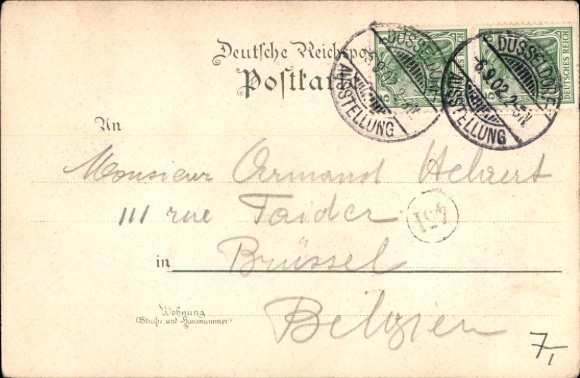 Deutsche Reichspost
Postkarte
DÜSSELDORF
6.9.02.2-3N.
AUSSTELLUNG
DÜSSELDORF
6.9.02.2-3N.
AUSSTELLUNG
DEUTSCHES REICH
An
Monsieur Armand
111 rue
in Brüssel
Wohnung
(Straße und Hausnummer)
Belgien
7,